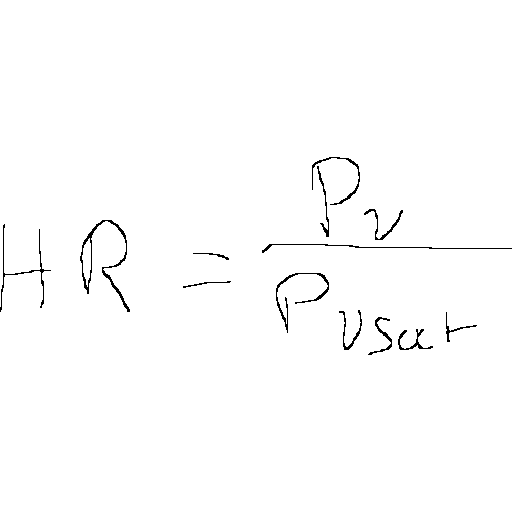 HR = \frac{P_v}{P_{vsat}}